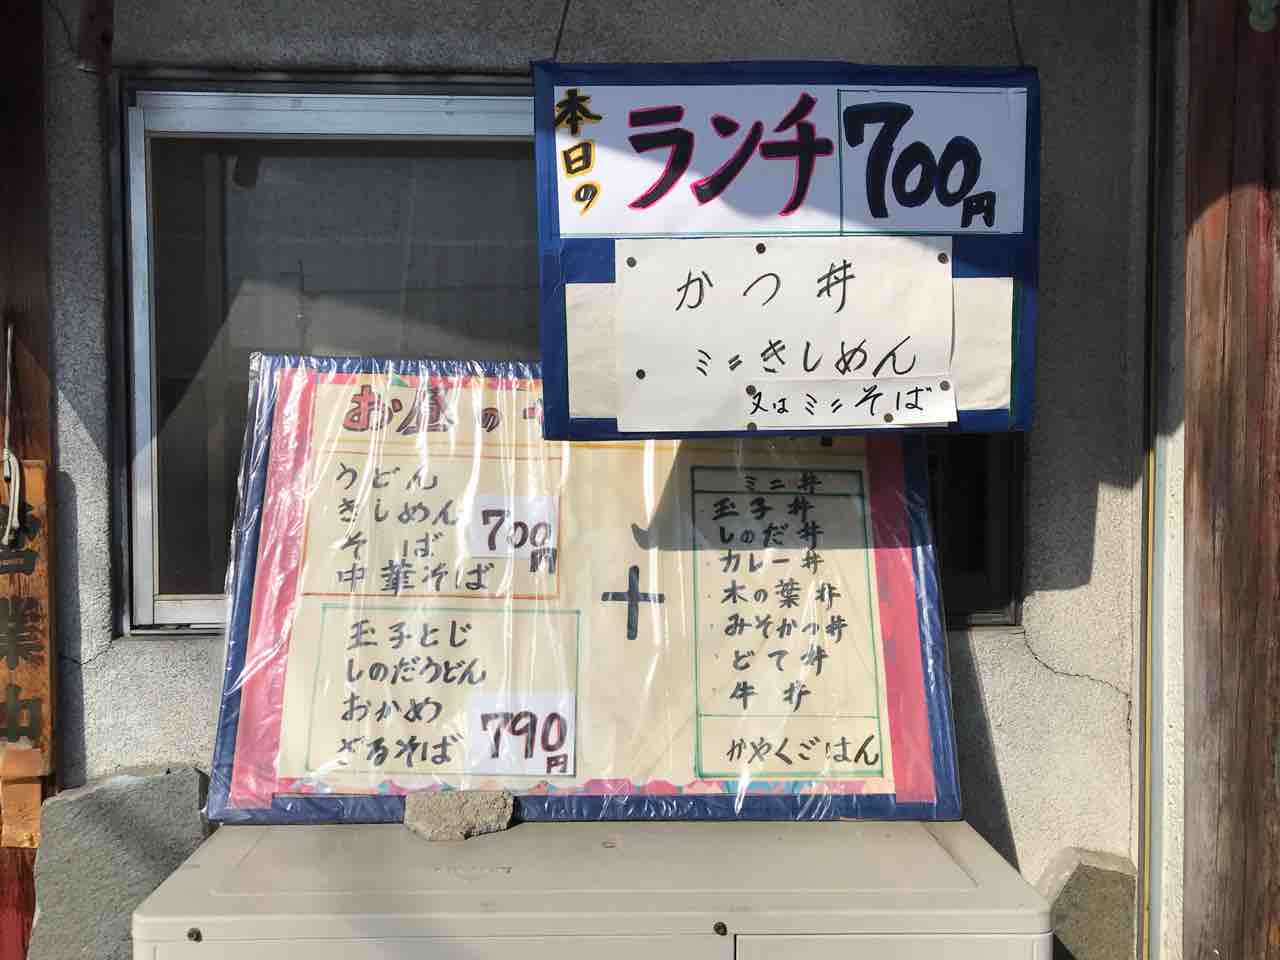 本日の
ランチ
700円
かつ丼
ミニきしめん
又はミニそば
お昼の
うどん
きしめん
そば
中華そば
700円
玉子とじ
しのだうどん
おかめ
ざるそば
790円
+
ミニ丼
玉子丼
しのだ丼
カレー丼
木の葉丼
みそかつ丼
どて丼
牛丼
かやくごはん
業中